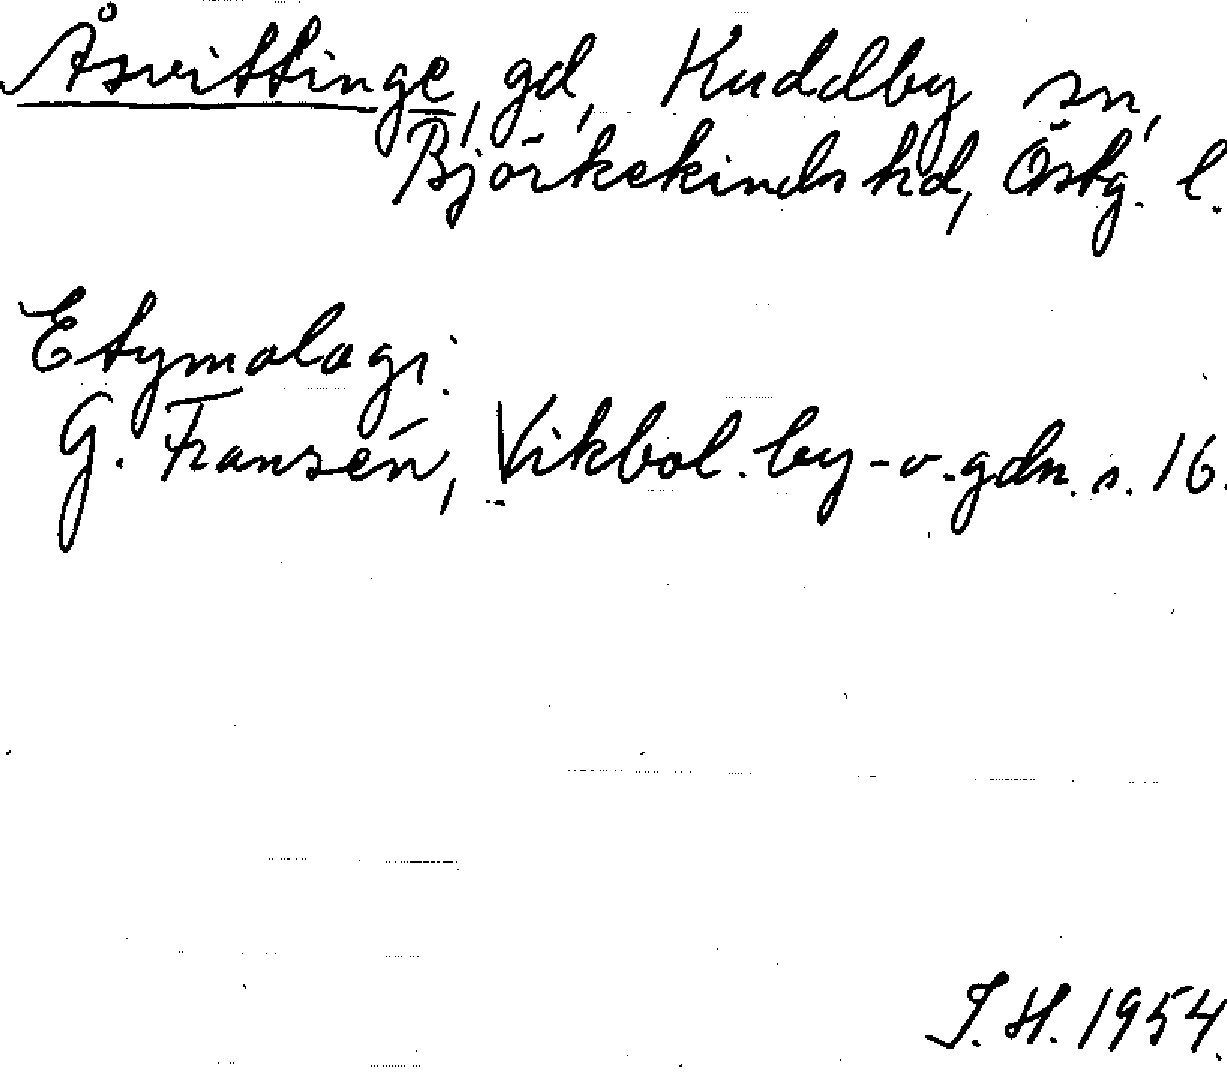 Åsvittinge, gd, Kuddby sn,
Björkekinds hd, Östg. l.
Etymologi.
G. Fransén, Vikbol. by- o. gdn. s. 16.
I. H. 1954.